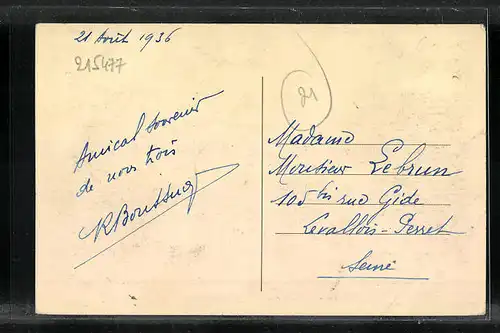 21 Août 1936
215477
21
Amical souvenir
de nous trois
Madame
Monsieur Lebrun
105 bis rue Gide
Levallois-Perret
Seine